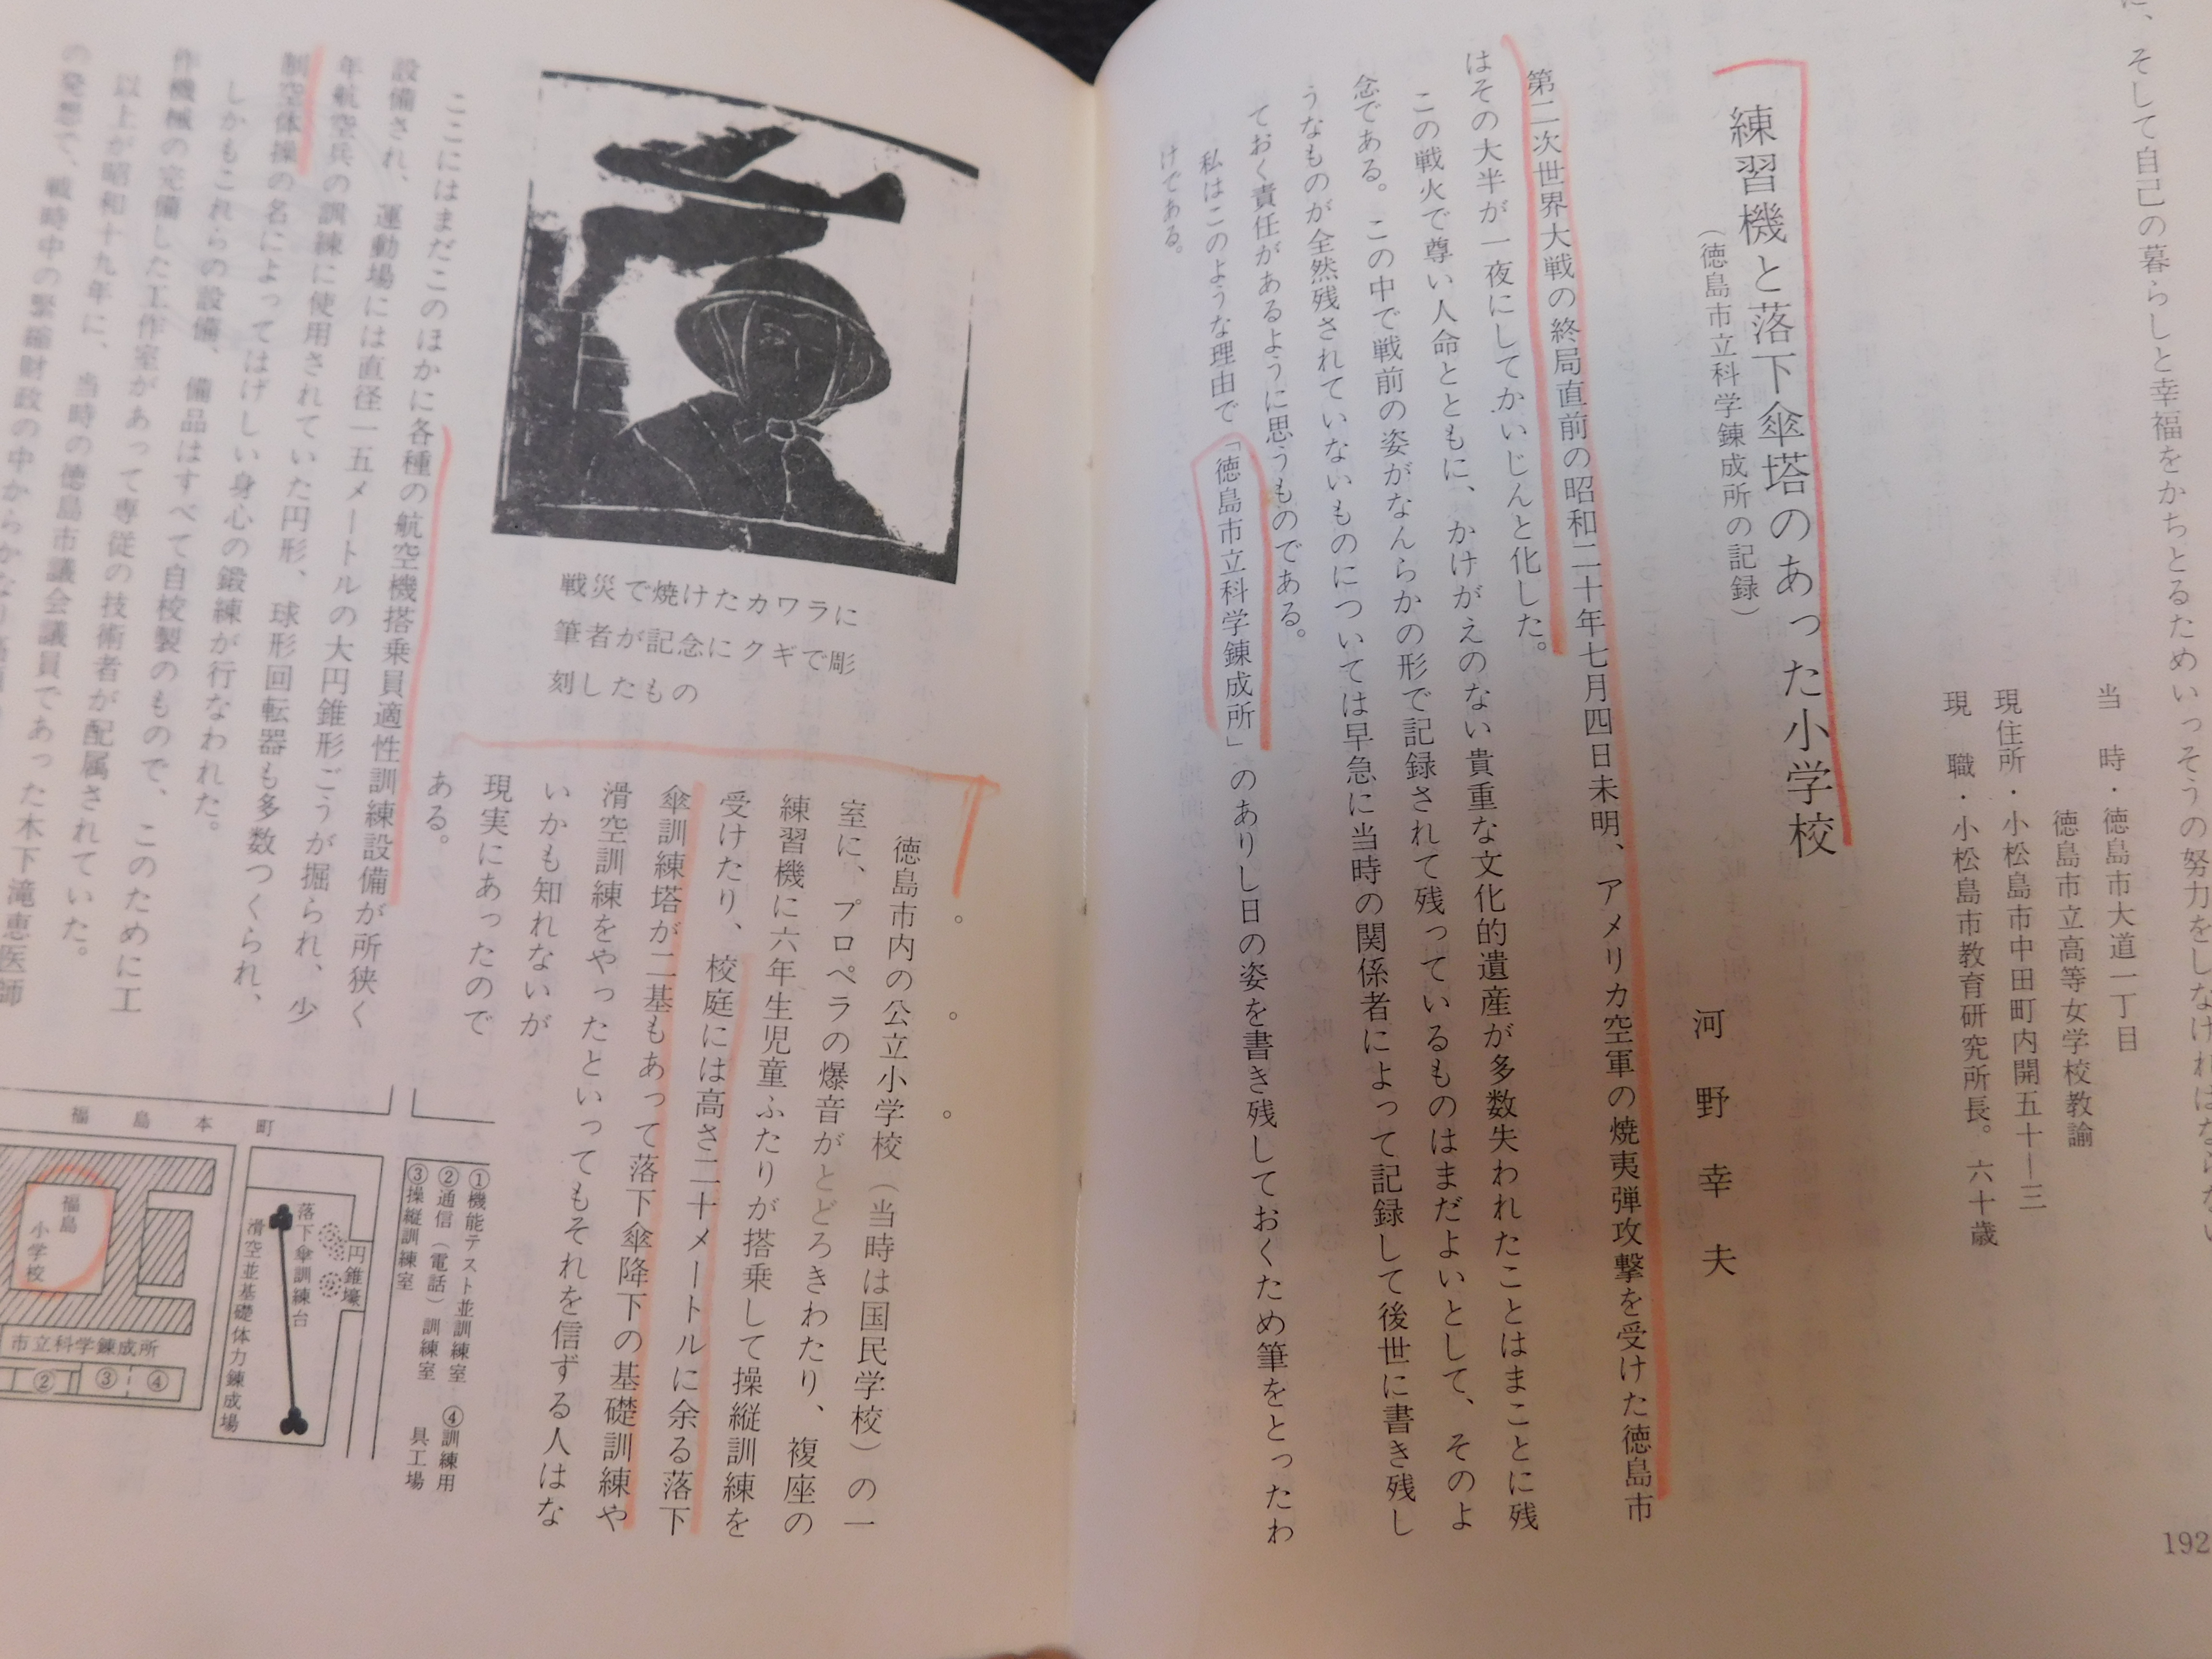 、そして自己の暮らしと幸福をかちとるためいっそうの努力をしなければならない
当　時・徳島市大道一丁目
徳島市立高等女学校教諭
現住所・小松島市中田町内開五十ー三
現　職・小松島市教育研究所長。六十歳
練習機と落下傘塔のあった小学校
（徳島市立科学錬成所の記録）
河野幸夫
第二次世界大戦の終局直前の昭和二十年七月四日未明、アメリカ空軍の焼夷弾攻撃を受けた徳島市
はその大半が一夜にしてかいじんと化した。
この戦火で尊い人命とともに、かけがえのない貴重な文化的遺産が多数失われたことはまことに残
念である。この中で戦前の姿がなんらかの形で記録されて残っているものはまだよいとして、そのよ
うなものが全然残されていないものについては早急に当時の関係者によって記録して後世に書き残し
ておく責任があるように思うものである。
私はこのような理由で「徳島市立科学錬成所」のありし日の姿を書き残しておくため筆をとったわ
けである。
192
。　。　。
徳島市内の公立小学校（当時は国民学校）の一
室に、プロペラの爆音がとどろきわたり、複座の
練習機に六年生児童ふたりが搭乗して操縦訓練を
受けたり、校庭には高さ二十メートルに余る落下
傘訓練塔が二基もあって落下傘降下の基礎訓練や
滑空訓練をやったといってもそれを信ずる人はな
いかも知れないが
現実にあったので
ある。
戦災で焼けたカワラに
筆者が記念にクギで彫
刻したもの
ここにはまだこのほかに各種の航空機搭乗員適性訓練設備が所狭く
設備され、運動場には直径一五メートルの大円錐形ごうが掘られ、少
年航空兵の訓練に使用されていた円形、球形回転器も多数つくられ、
制空体操の名によってはげしい身心の鍛練が行なわれた。
しかもこれらの設備、備品はすべて自校製のもので、このために工
作機械の完備した工作室があって専従の技術者が配属されていた。
以上が昭和十九年に、当時の徳島市議会議員であった木下滝恵医師
の発想で、戦時中の緊縮財政の中からかなり
福島本町
①機能テスト並訓練室
②通信（電話）訓練室
③操縦訓練室
④訓練用
具工場
円錐壕
落下傘訓練台
滑空並基礎体力錬成場
福島
小学校
市立科学錬成所
②
③
④